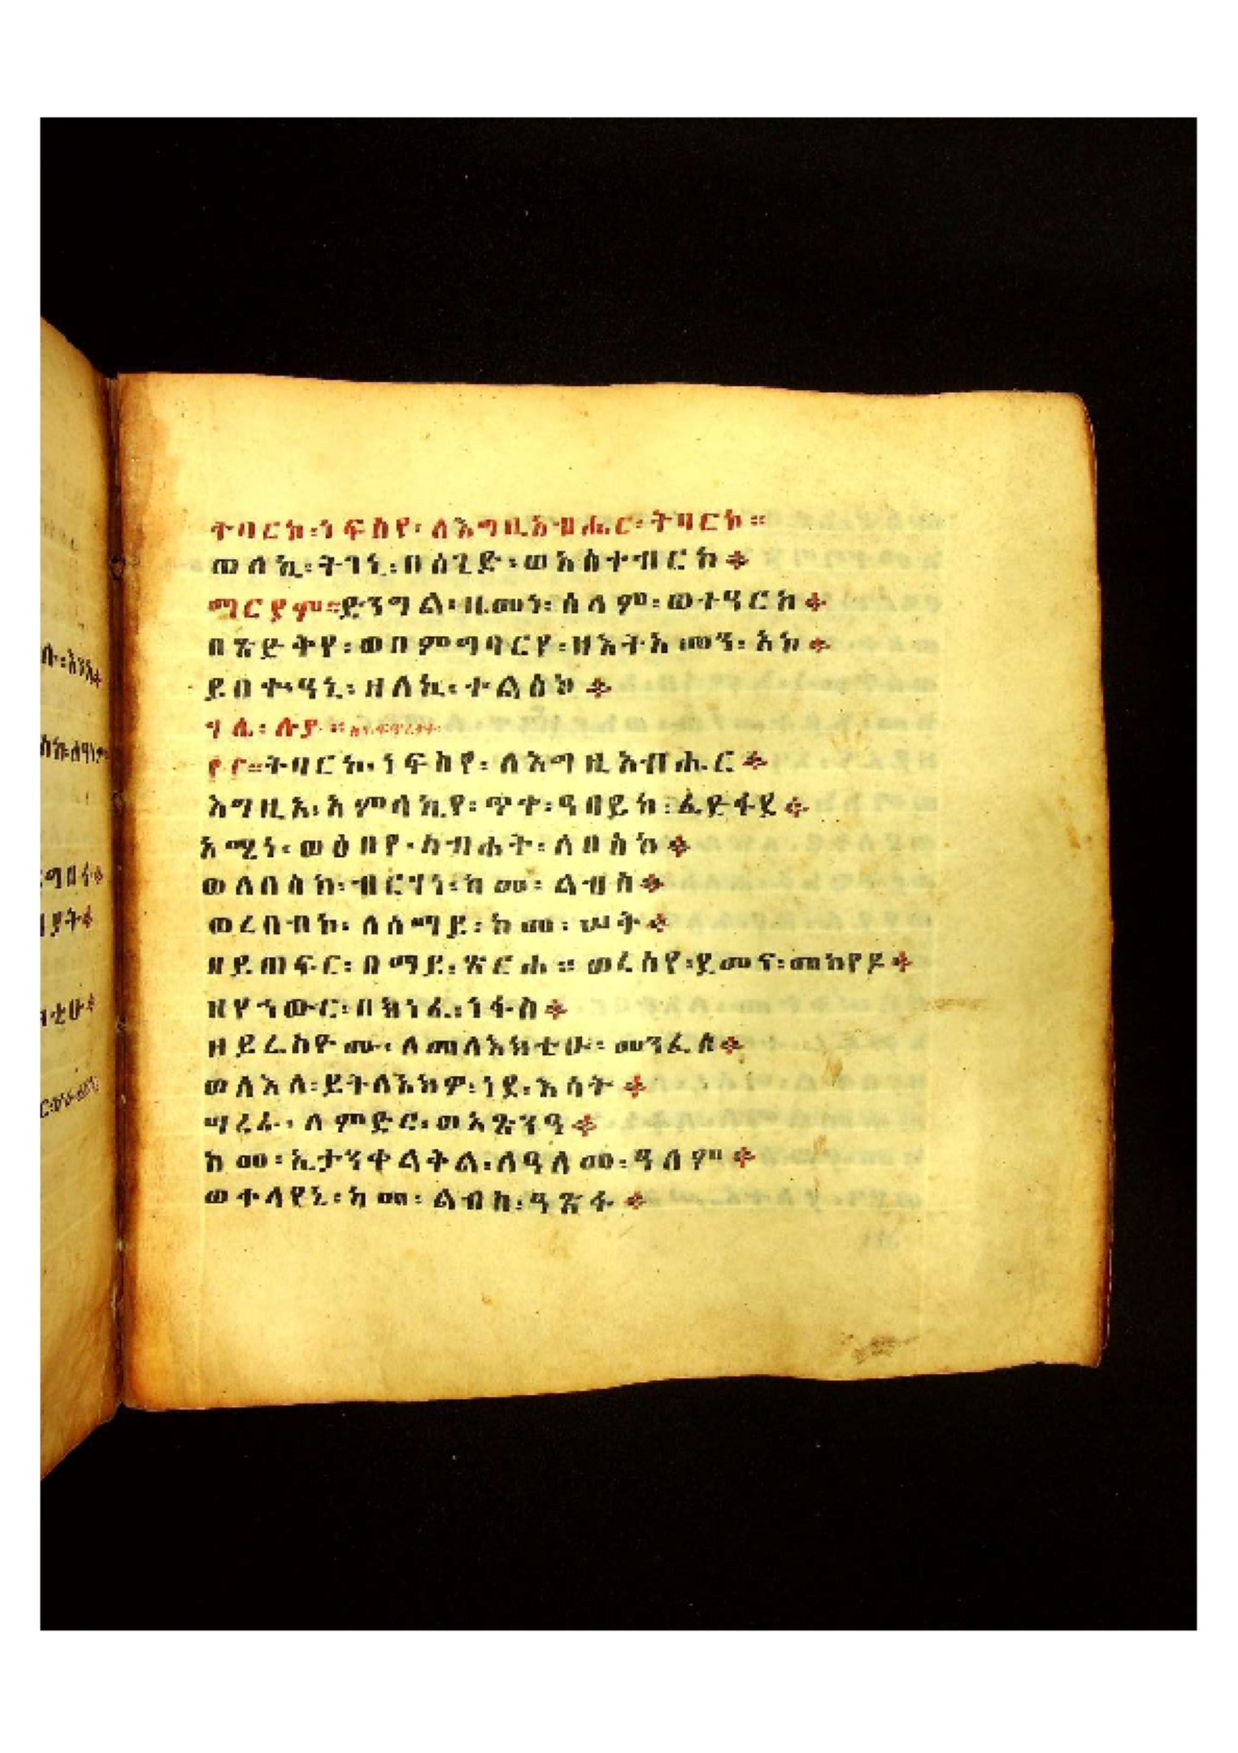 ትባርክ፡ነፍስየ፡ለእግዚአብሔር፡ትባርክ።
ወለኪ፡ትገኒ፡በሰጊድ፡ወአስተብርኮ
ማርያም።ድንግል፡ዚመነ፡ሰላም፡ወተዓርኮ
በጽድቅየ፡ወበምግባርየ፡ዘእትአመን፡አኮ
ይበቍዓኒ፡ዘለኪ፡ተልእኮ
ሃሌ፡ሉያ።
፻፫።ትባርኮ፡ነፍስየ፡ለእግዚአብሔር
እግዚእ፡አምላኪየ፡ጥቀ፡ዓበይከ፡ፈድፋደ
አሚነ፡ወዕበየ፡ስብሐት፡ለበስከ
ወለበስከ፡ብርሃነ፡ከመ፡ልብስ
ወረበብኮ፡ለሰማይ፡ከመ፡ሠቅ
ዘይጠፍር፡በማይ፡ጽርሐ።ወረሰየ፡ደመና፡መከየዶ
ዘየሐውር፡በክነፈ፡ነፋስ
ዘይሬስዮሙ፡ለመላእክቲሁ፡መንፈሰ
ወለእለ፡ይትለአክዎ፡ነደ፡እሳት
ሣረራ፡ለምድር፡ወአጽንዓ
ከመ፡ኢታንቀልቅል፡ለዓለመ፡ዓለም
ወተላየኒ፡ከመ፡ልብስ፡ዓጽፋ